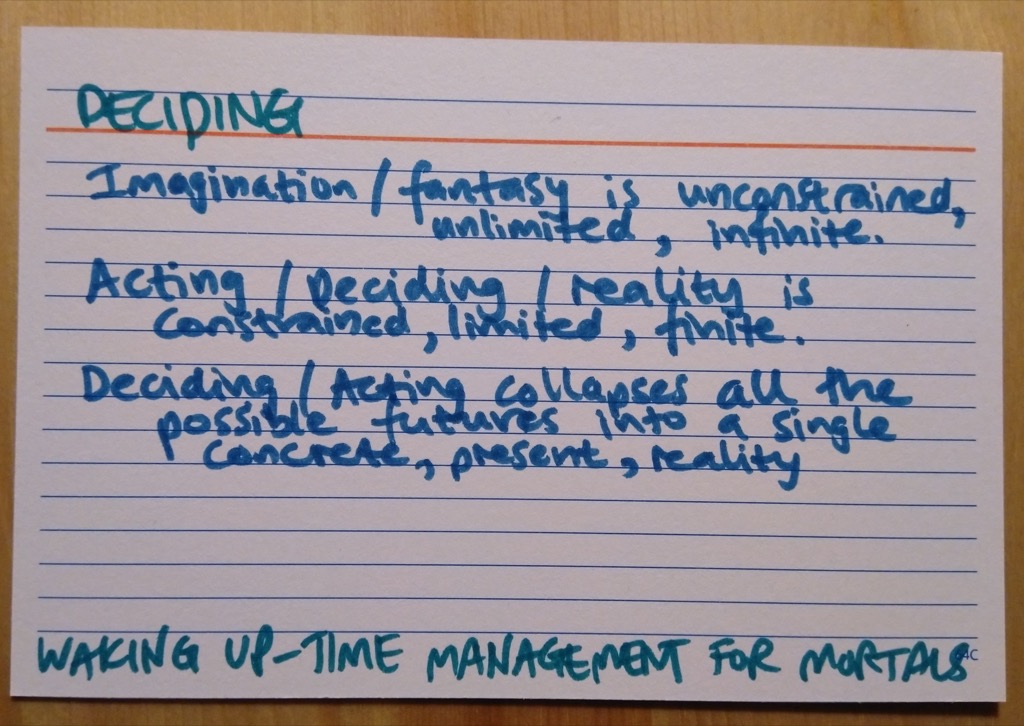 DECIDING
Imagination / fantasy is unconstrained,
unlimited, infinite.
Acting / Deciding / reality is
constrained, limited, finite.
Deciding / Acting collapses all the
possible futures into a single
concrete, present, reality
WAKING UP-TIME MANAGEMENT FOR MORTALS